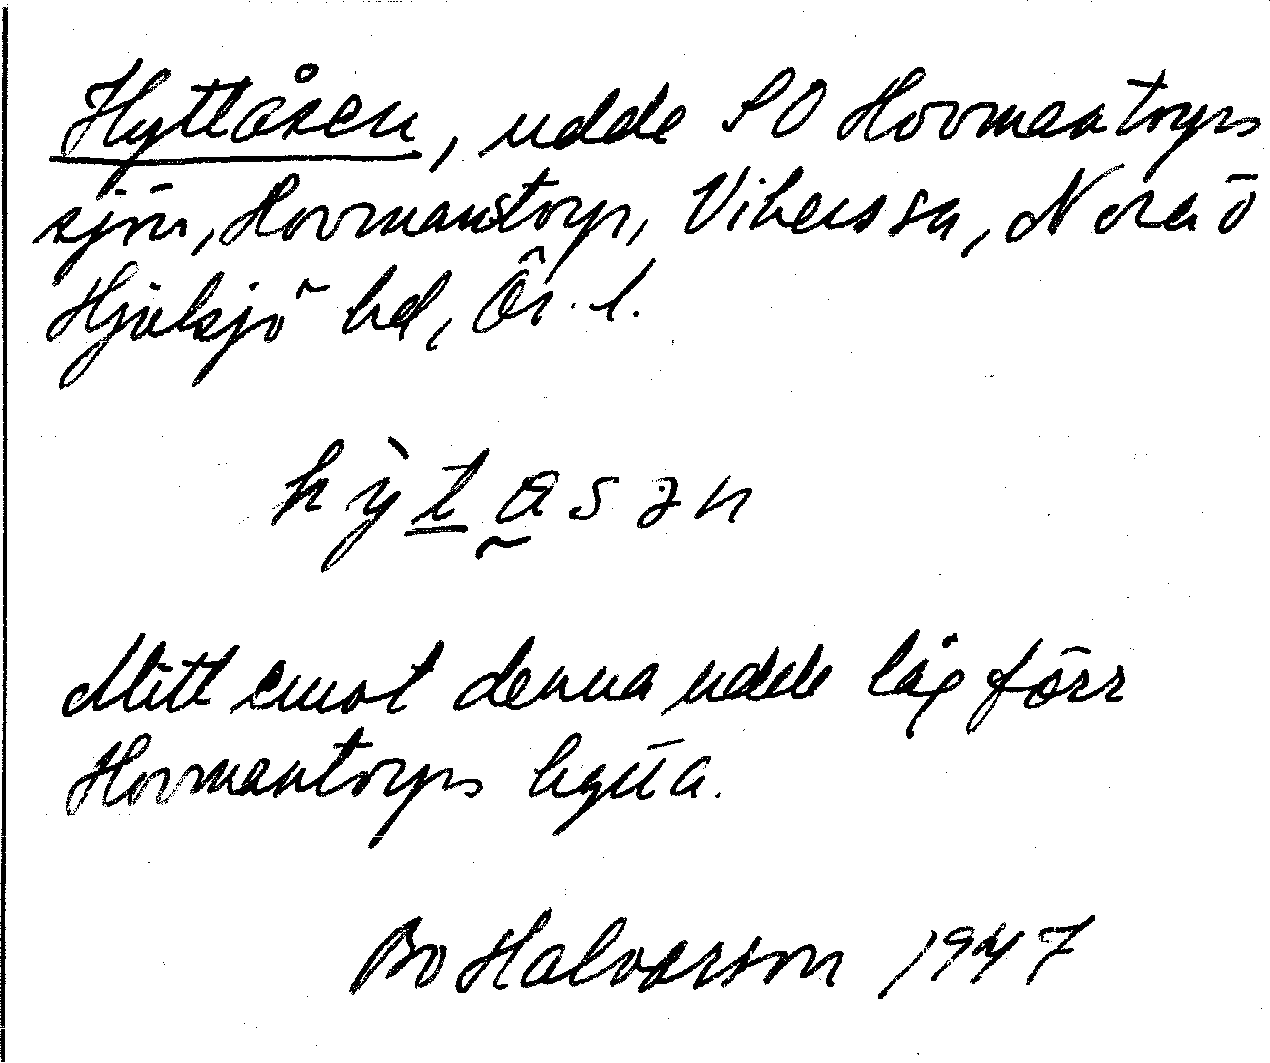 Hyttåsen, udde SO Hovmantorps
sjön, Hovmantorp, Vikers sn, Nora o
Hjulsjö hd, Ör. l.
hỳt̲ɑ̰sən
Mitt emot denna udde låg förr
Hovmantorps hytta.
Bo Halvarson 1947